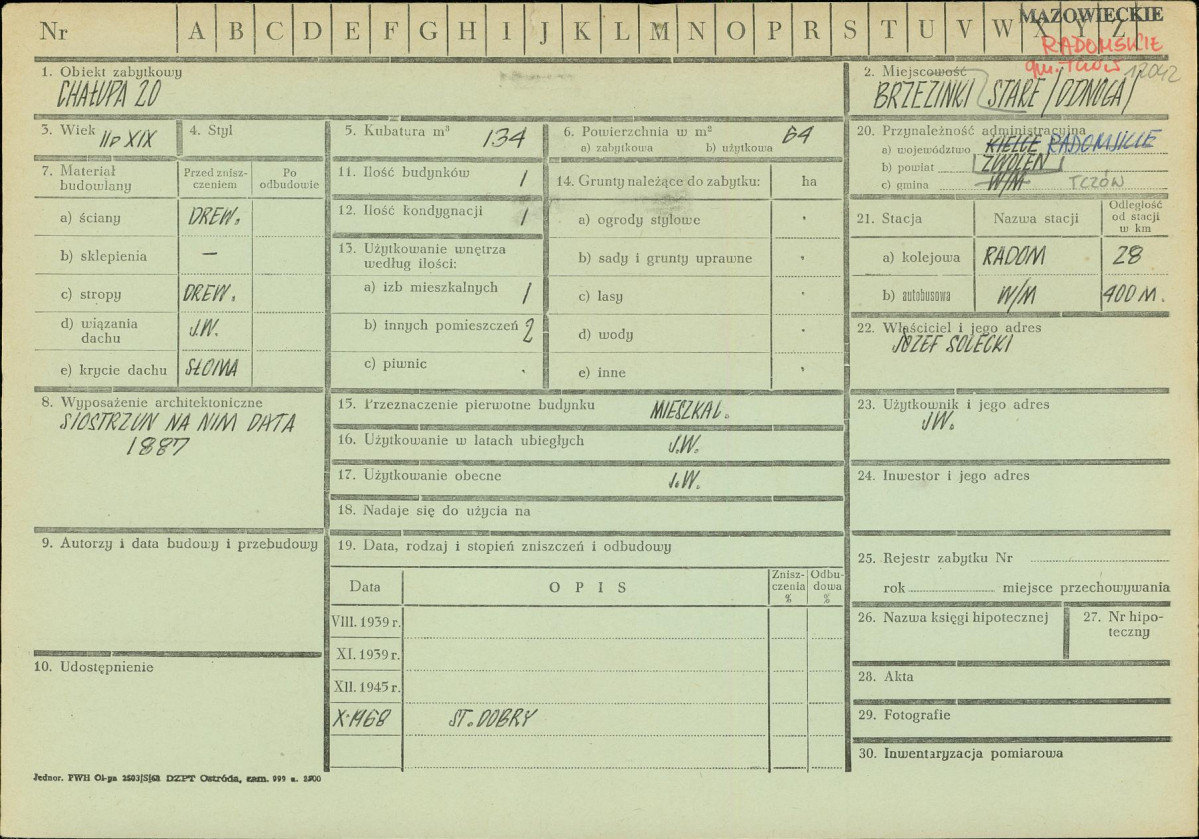 Nr A B C D E F G H I J K L M N O P R S T U V W X Y Z
MAZOWIECKIE
RADOMSKIE
gm. TCZÓW 12042
1. Obiekt zabytkowy
CHAŁUPA 20
2. Miejscowość
BRZEZINKI STARE /ODNOGA/
3. Wiek IIp XIX
4. Styl
5. Kubatura m³ 134
6. Powierzchnia w m² 64
a) zabytkowa b) użytkowa
20. Przynależność administracyjna
a) województwo KIELCE RADOMSKIE
b) powiat ZWOLEŃ
c) gmina W/M TCZÓW
7. Materiał budowlany
Przed zniszczeniem
Po odbudowie
a) ściany DREW.
b) sklepienia —
c) stropy DREW.
d) wiązania dachu J.W.
e) krycie dachu SŁOMA
11. Ilość budynków 1
12. Ilość kondygnacji 1
13. Użytkowanie wnętrza według ilości:
a) izb mieszkalnych 1
b) innych pomieszczeń 2
c) piwnic
14. Grunty należące do zabytku: ha
a) ogrody stylowe
b) sady i grunty uprawne
c) lasy
d) wody
e) inne
21. Stacja Nazwa stacji Odległość od stacji w km
a) kolejowa RADOM 28
b) autobusowa W/M 400 M.
22. Właściciel i jego adres
JÓZEF SOLECKI
8. Wyposażenie architektoniczne
SIOSTRZUN NA NIM DATA
1887
15. Przeznaczenie pierwotne budynku MIESZKAL.
16. Użytkowanie w latach ubiegłych J.W.
17. Użytkowanie obecne J.W.
18. Nadaje się do użycia na
23. Użytkownik i jego adres
JW.
24. Inwestor i jego adres
9. Autorzy i data budowy i przebudowy
19. Data, rodzaj i stopień zniszczeń i odbudowy
Data OPIS Zniszczenia % Odbudowa %
VIII. 1939 r.
XI. 1939 r.
XII. 1945 r.
X. 1968 ST. DOBRY
25. Rejestr zabytku Nr
rok miejsce przechowywania
26. Nazwa księgi hipotecznej
27. Nr hipoteczny
10. Udostępnienie
28. Akta
29. Fotografie
30. Inwentaryzacja pomiarowa
Jednor. PWH Ol-ga 2503/S/68 DZPT Ostróda, zam. 999 n. 2500